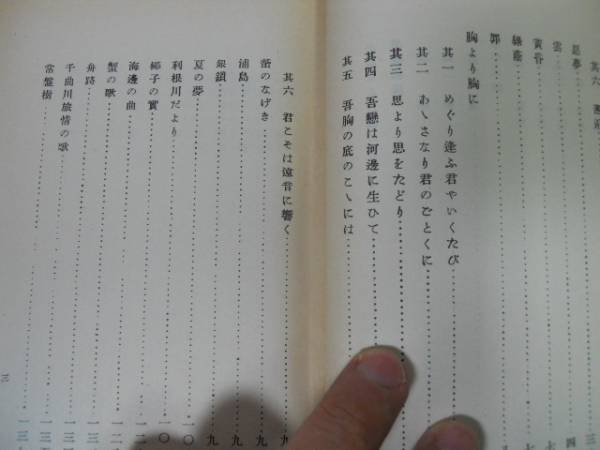 其六
悪夢……三
黄昏
胸より胸に
其一 めぐり逢ふ君やいくたび……
其二 あゝさなり君のごとくに……
其三 思より思をたどり……
其四 吾戀は河邊に生ひて……
其五 吾胸の底のこゝには……
其六 君こそは遠音に響く……九
のなげき……九
浦島……九
銀鎖……九
夏の夢……一〇
利根川だより……一〇
椰子の實……一〇
海邊の曲……一二
蟹の歌……一二
舟路……一三
千曲川旅情の歌……一三
常盤樹……一三